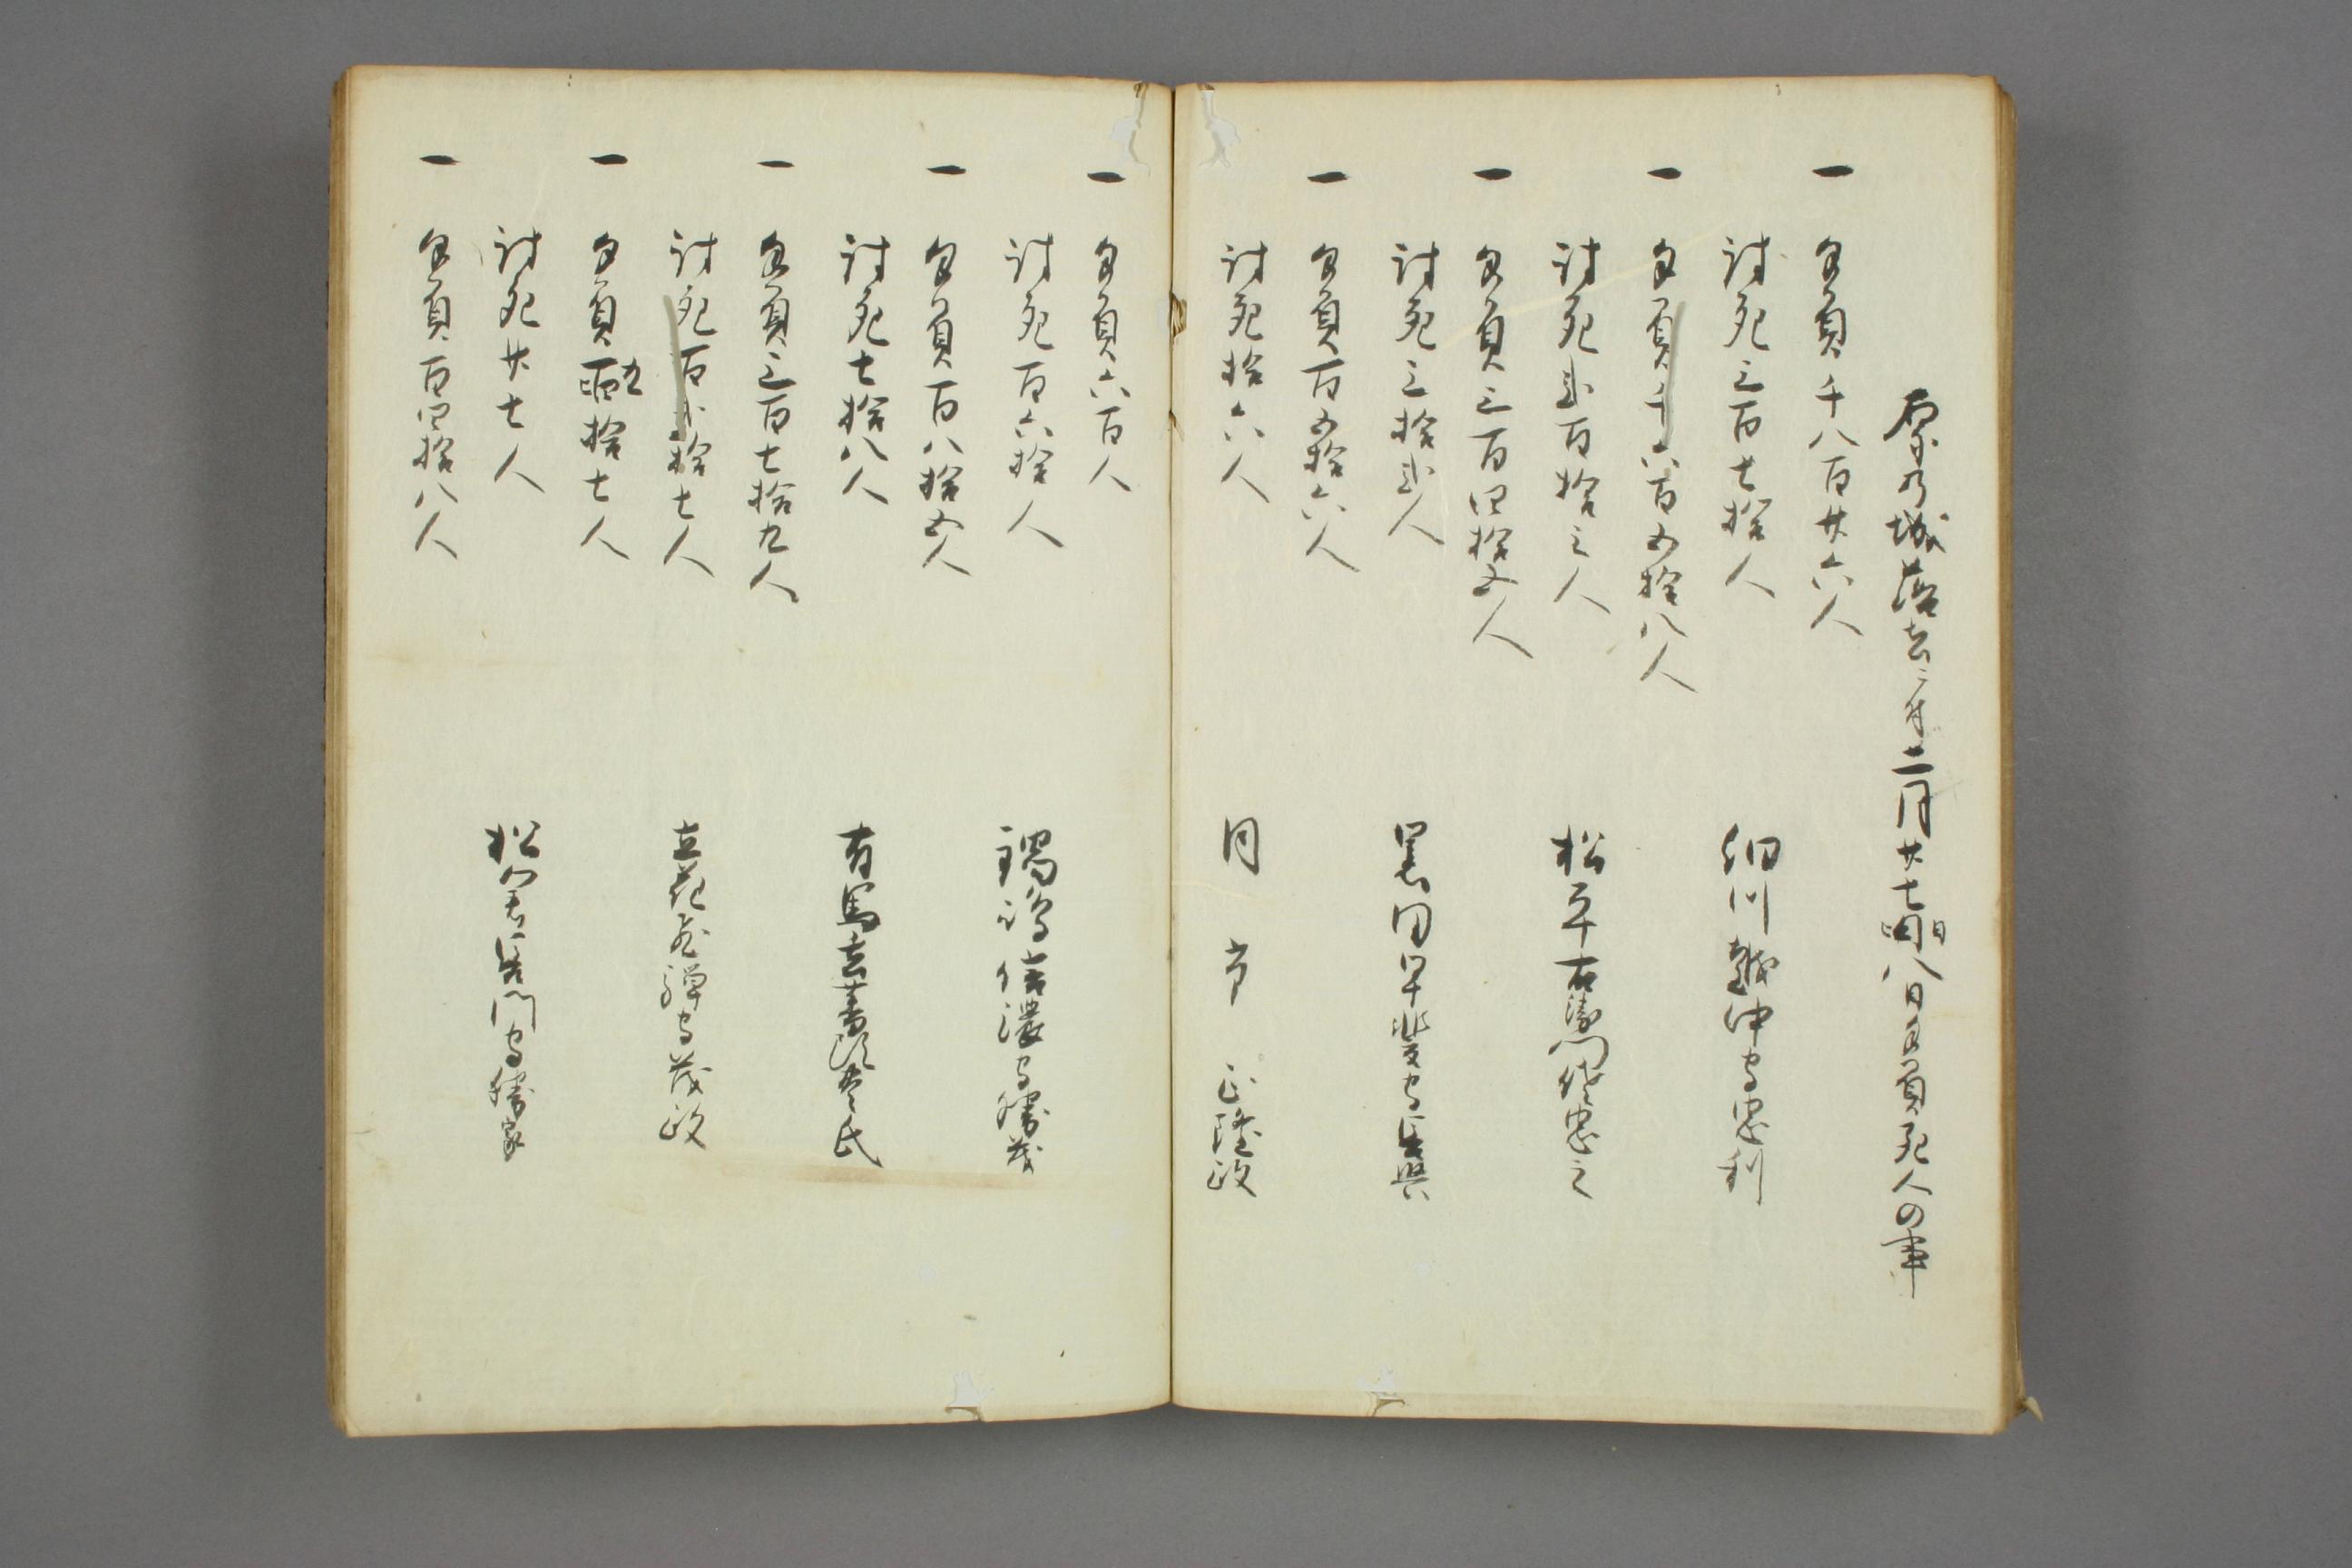 原乃城落去之事二月廿七日八日手負死人の事
一 手負千八百廿六人
討死三百七拾人 細川越中守忠利
一 手負千六百五拾八人
討死弐百拾三人 松平右衛門佐忠之
一 手負三百四拾五人
討死三拾弐人 黒田甲斐守長興
一 手負百五拾六人
討死拾六人 同 市正隆政
一 手負六百人
討死百六拾人 鍋嶋信濃守勝茂
一 手負百八拾五人
討死七拾八人 有馬玄蕃頭豊氏
一 手負三百七拾九人
討死百弐拾七人 立花飛騨守茂政
一 手負五拾七人
討死廿七人 松倉長門守勝家
一 手負百四拾八人